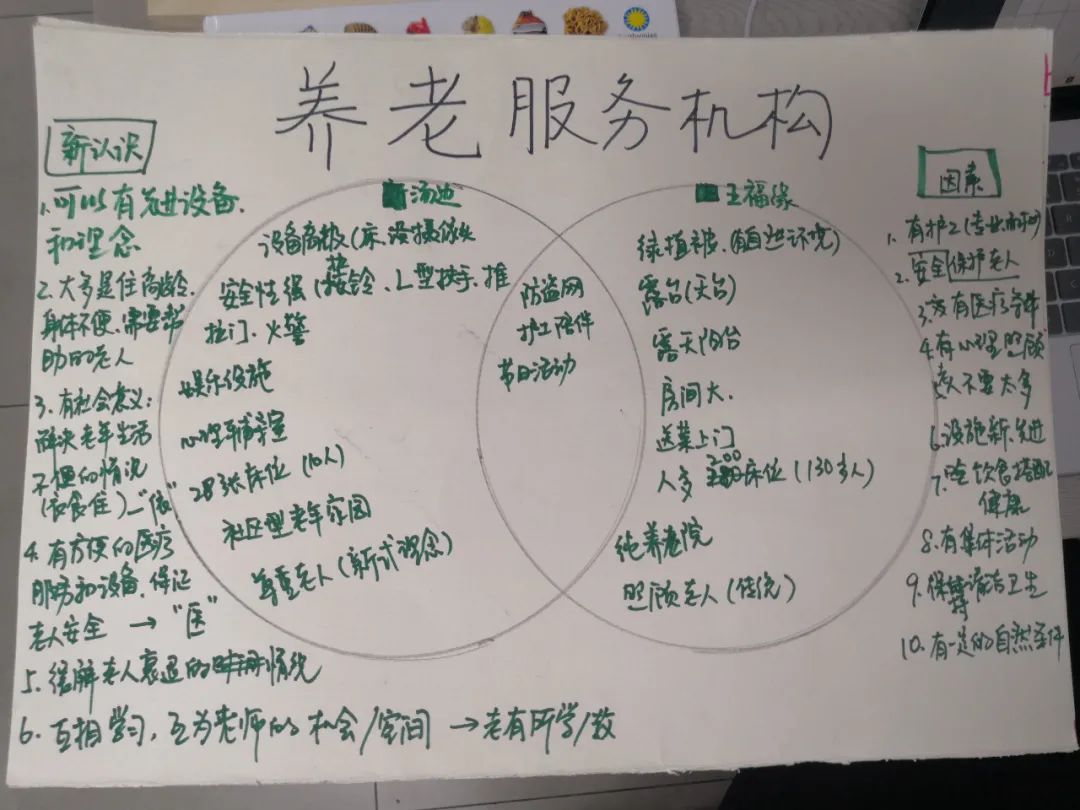 养老服务机构
新认识
1.可以有先进设备、
和理念
2.大多是住高龄、
身体不便、需要帮
助的老人
3.有社会意义：
解决老年生活
不便的情况
(衣食住)—“依”
4.有方便的医疗
服务和设备、保证
老人安全 → “医”
5.缓解老人衰退的情况
6.互相学习，互为老师的机会/空间 → 老有所学/教
新汤池
设备高级(床、浴、摄像头
安全性强(按铃、L型扶手、推
拉门、火警
娱乐设施
心理辅导室
28张床位(10人)
社区型老年家园
尊重老人(新式理念)
防盗网
护工陪伴
节日活动
王福缘
绿植被、(自然环境)
露台(天台)
露天阳台
房间大、
送菜上门
人多 200床位(130多人)
纯养老院
照顾老人(传统)
因素
1.有护工(专业的)
2.安全保护老人
3.没有医疗条件
4.有心理照顾
老人不要太多
6.设施新、先进
7.吃饮食搭配
健康
8.有集体活动
9.保持清洁卫生
10.有一定的自然条件